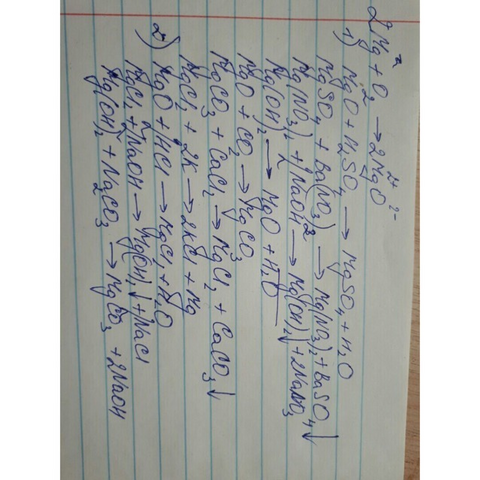 2Mg + O₂ → 2Mg²⁺O²⁻
1) MgO + H₂SO₄ → MgSO₄ + H₂O
MgSO₄ + Ba(NO₃)₂ → Mg(NO₃)₂ + BaSO₄↓
Mg(NO₃)₂ + 2NaOH → Mg(OH)₂↓ + 2NaNO₃
Mg(OH)₂ → MgO + H₂O
MgO + CO₂ → MgCO₃
MgCO₃ + CaCl₂ → MgCl₂ + CaCO₃↓
MgCl₂ + 2K → 2KCl + Mg
2) MgO + HCl → MgCl₂ + H₂O
MgCl₂ + NaOH → Mg(OH)₂↓ + NaCl
Mg(OH)₂ + Na₂CO₃ → MgCO₃ + 2NaOH